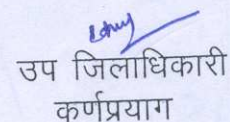 उप जिलाधिकारी
कर्णप्रयाग